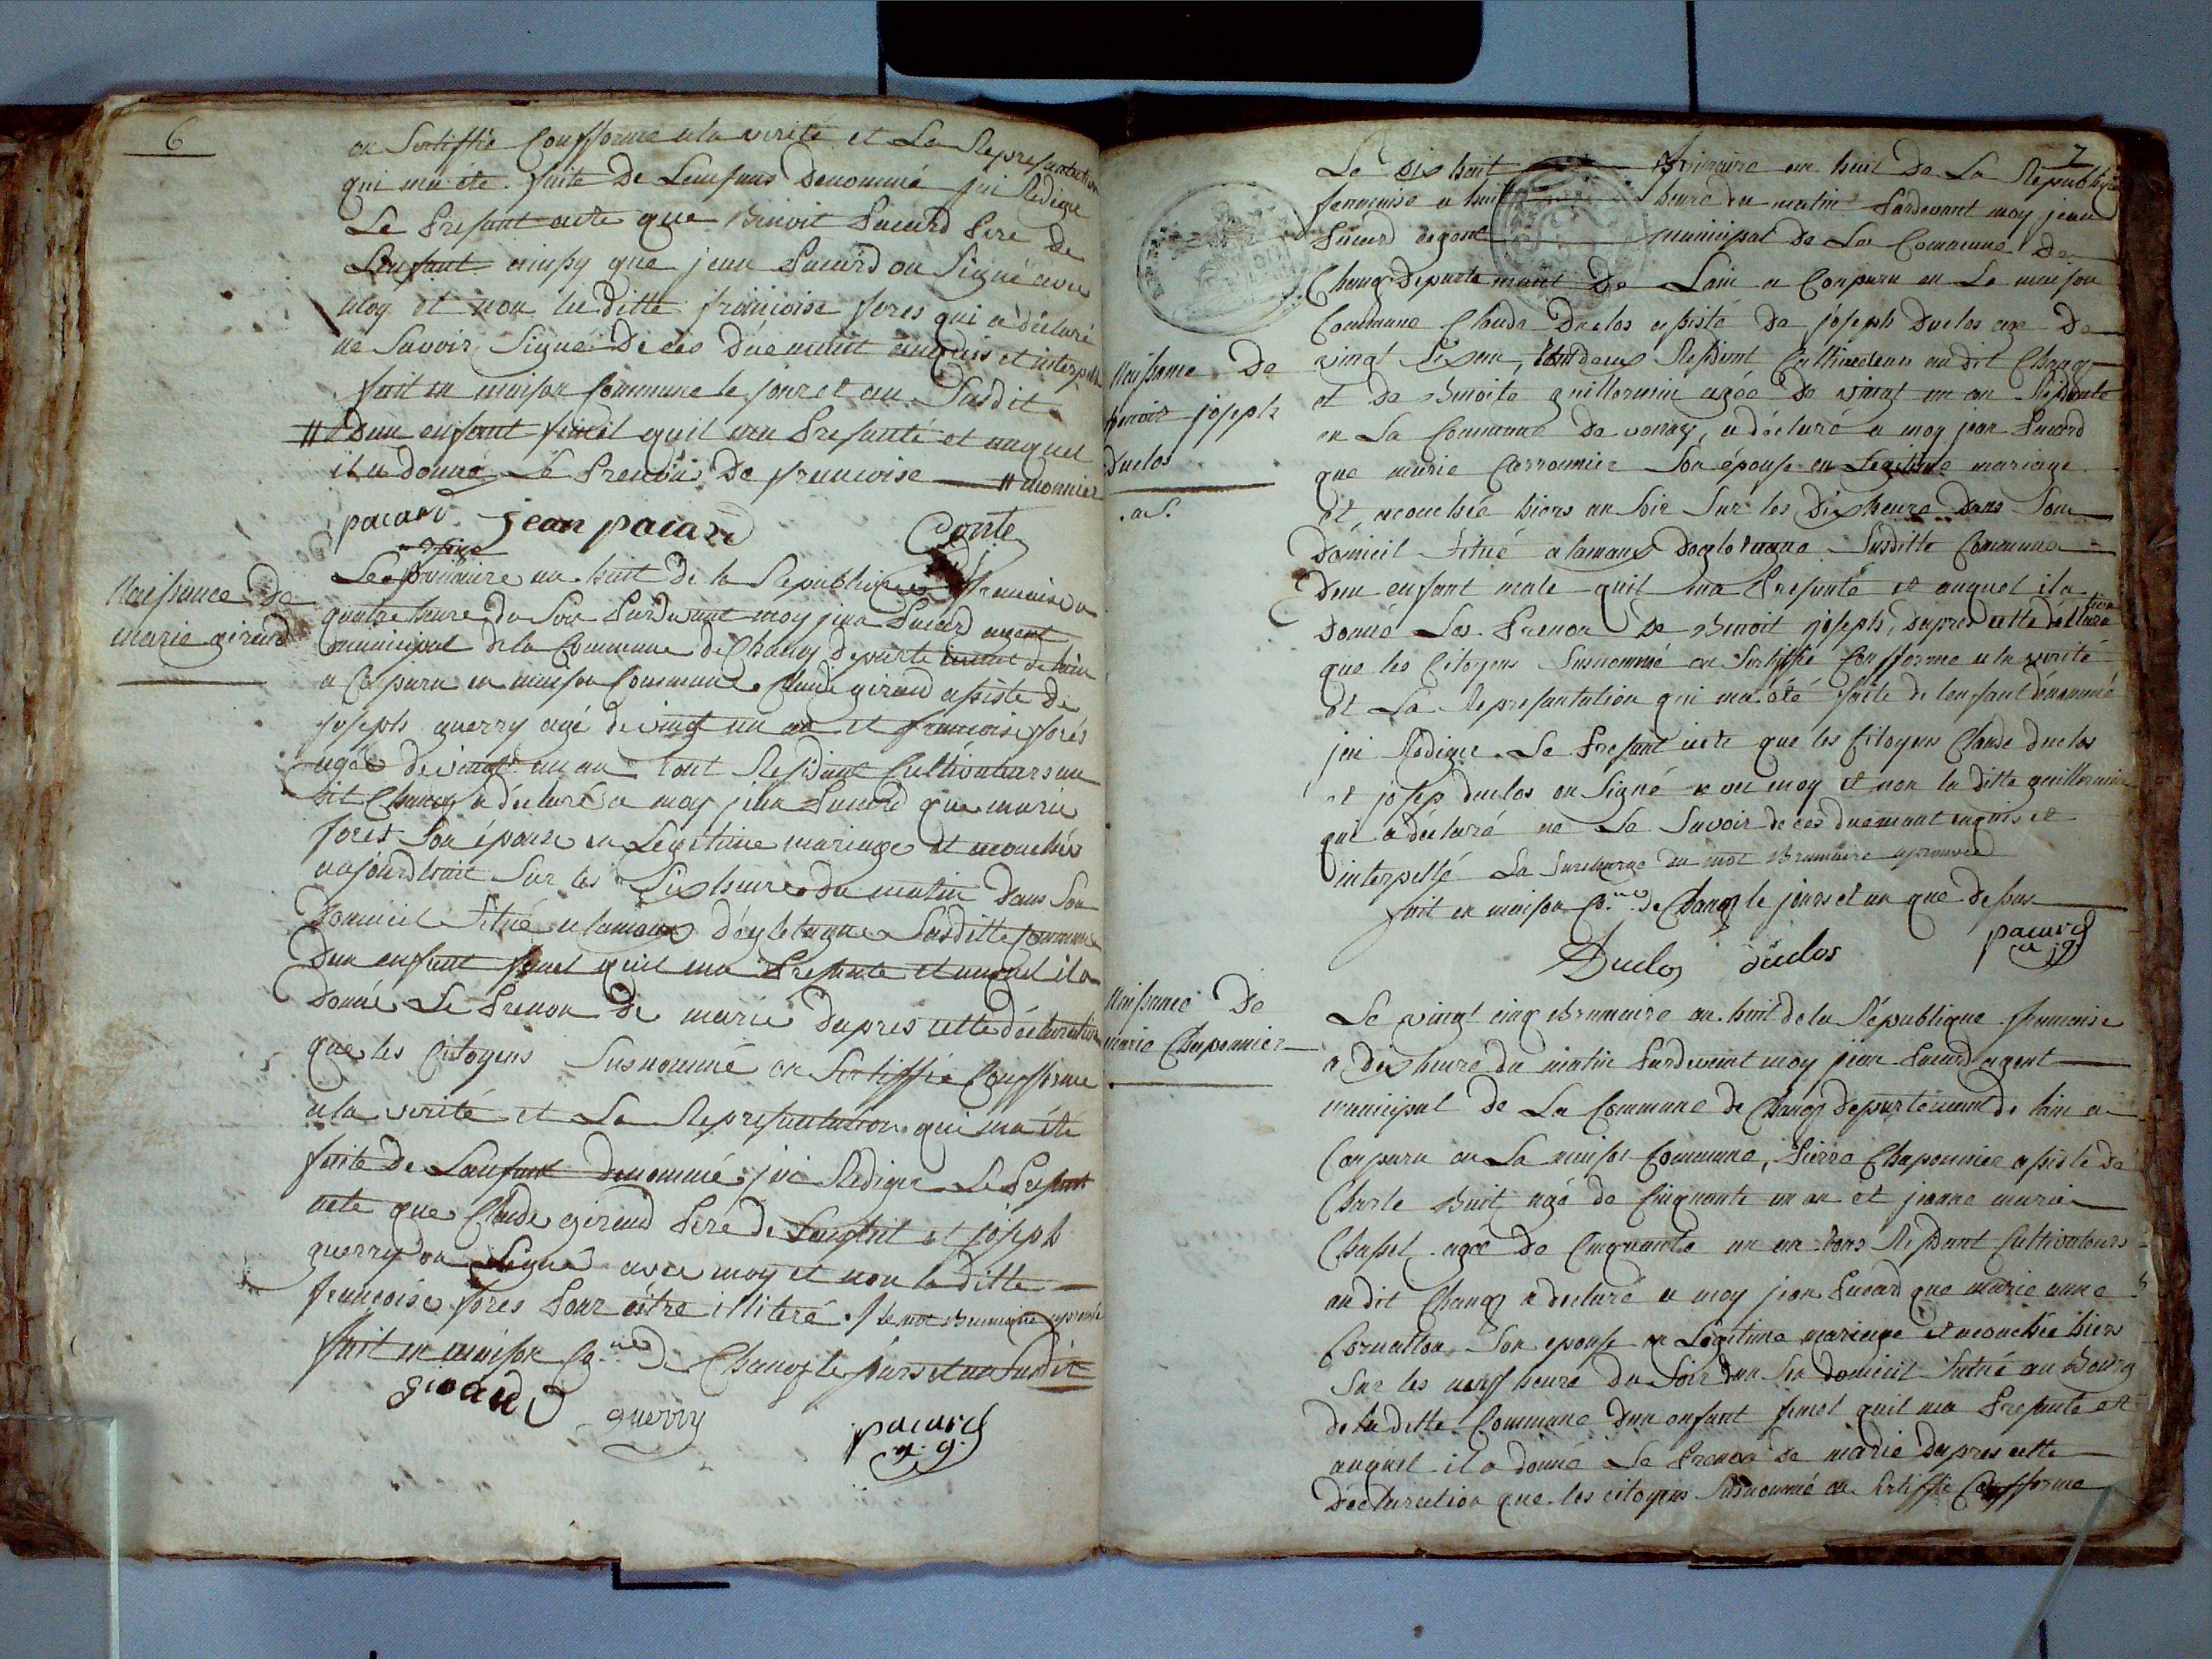 6
on Sertiffié Confforme a la verité et La Represantation
qui ma été faite de Lenfans Denommé jai Redigé
Le Presant acte que Benoit Pacard Pere de
Lenfant ainsy que jean Pacard on Signé avec
moy et non la ditte francoise fores qui a déclaré
ne Savoir Signé De ces Dûemant enquis et interpellé
fait en maison Commune le jour et an Susdit
# Dun enfant femel quil ma Presanté et auquel
il a donné Le Prenoms De francoise # monnier
pacard jean pacard Conte
Naissance de
marie girard
Le Brumaire an huit de la Republique francaise a
quatre heure du Soir Pardevant moy jean Pacard agent
municipal de la Commune de Chanoz departemant de lain
a Conparu en maison Commune Claude girard assisté de
joseph guerry agé de vingt un an et francoise forés
agée de vingt un an tout Residant Cultivateurs au
dit Chanoz a déclaré a moy jean Pacard que marie
forés Son épouse en Legitime mariage et acouchée
aujourdhuit Sur les Six heure du matin dans Son
Domicil Situé a lamaux déglétagne Susditte Commune
Dun enfant femel quil ma Presanté et auquel il a
Donné Le Prenon de marie dapres cette déclaration
que les Citoyens Susnommé on Sertiffié Confforme
a la verité et La Represantation qui ma été
faite de Lanfant denommé jai Redigé Le Presant
acte que Claude girard Pere de Lanfant et joseph
guerry on Signé avec moy et non la ditte
francoise fores Pour être illiteré / le mot Brumaire aprouvé
fait en maison Co.ne de Chanoz le jours et an Susdit
girard guerry pacard
a. g.
7
Le Dix huit Brimaire an huit De La Republique
francaise a huit heure du matin Pardevant moy jean
Pacard agant municipal De La Commune De
Chanoz Departemant De Lain a Conparu en La maison
Commune Claude Duclos assisté De joseph Duclos agé De
vingt Six an, tout deux Residant Cultivateurs au dit Chanoz
et De Benoite guillermin agée De vingt un an Residante
en La Commune De vonnaz, a déclaré a moy jean Pacard
que marie Carronnier Son épouse en Legitime mariage
Naissance De
benoit joseph
Duclos
et acouchée hiers au Soir Sur les Dix heure Dans Son
Domicil Situé a lamaux Deglétagne Susditte Commune
Dun enfant male quil ma Presanté et auquel il a
Donné Les Prenon De Benoit joseph, Dapres cette déclaration
que les Citoyens Susnommé on Sertiffié Confforme a la verité
et La Represantation qui ma été faite de lenfant dénommé
jai Redigé Le Presant acte que les Citoyens Claude duclos
et josep duclos on Signé avec moy et non la ditte guillermin
qui a déclaré ne Le Savoir de ces duemant enquis et
interpellé La Surcharge du mot Brumaire aprouvée
fait en maison Co.ne de Chanoz le jours et an que dessus
Duclos duclos pacard
a g
Naissance De
marie Chaponnier
Le vingt cinq Brumaire an huit de la République francaise
a dix heure du matin Pardevant moy jean Pacard agent
municipal de La Commune de Chanoz departemant de lain a
Conparu en La maison Commune, Pierre Chaponnier assisté de
Charle Buit agé de Cinquante un an et jeanne marie
Chassel agée De Cinquante un an tous Residant Cultivateurs
au dit Chanoz a déclaré a moy jean Pacard que marie anne
Cornatton Son epouse en Légitime mariage et acouchée hiers
Sur les neuf heure du Soir dan Son domicil Situé au Bourg
de la ditte Commune Dun enfant femel quil ma Presanté et
auquel il a donné Le Prenon de marie Dapres cette
Déclaration que les citoyens Susnommé on Sertiffié Confforme